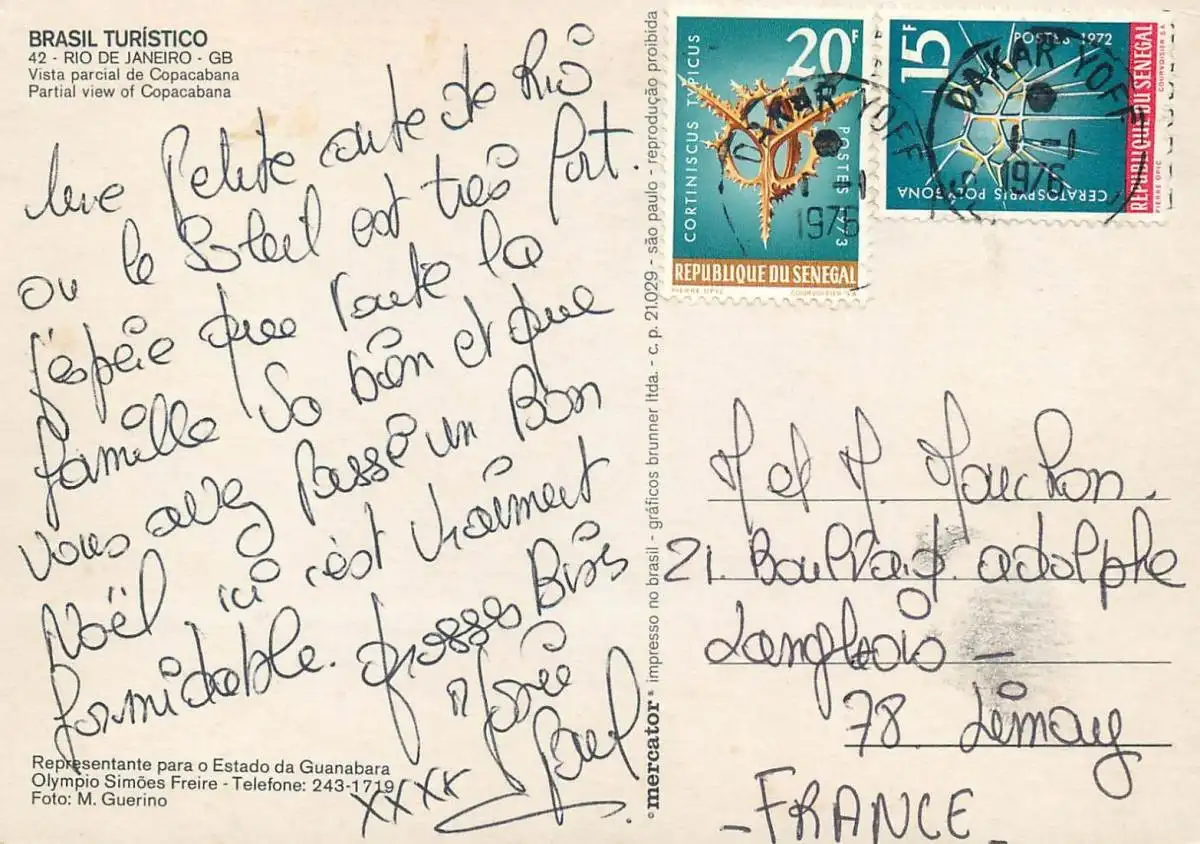 BRASIL TURÍSTICO
42 - RIO DE JANEIRO - GB
Vista parcial de Copacabana
Partial view of Copacabana
Une Petite carte de Rio
ou le Soleil est très fort.
J'espère que toute la
famille va bien et que
vous avez passé un Bon
Noël ici c'est vraiment
formidable. grosses Bises
Paul
xxxx
Representante para o Estado da Guanabara
Olympio Simões Freire - Telefone: 243-1719
Foto: M. Guerino
°mercator° impresso no brasil - gráficos brunner ltda. - c. p. 21.029 - são paulo - reprodução proibida
20F
CORTINISCUS TYPICUS
POSTES 1973
REPUBLIQUE DU SENEGAL
PIERRE OPIC
COURVOISIER SA
DAKAR YOFF
1-1
1976
15F
POSTES 1972
CERATOSPYRIS POLYGONA
REPUBLIQUE DU SENEGAL
PIERRE OPIC
COURVOISIER SA
DAKAR YOFF
1-1
1976
21. Boulvard. adolphe
Langlois -
78. Limay
- FRANCE -